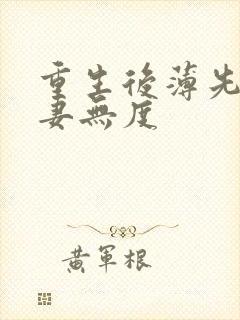 重生後薄先
妻無度
黃軍根